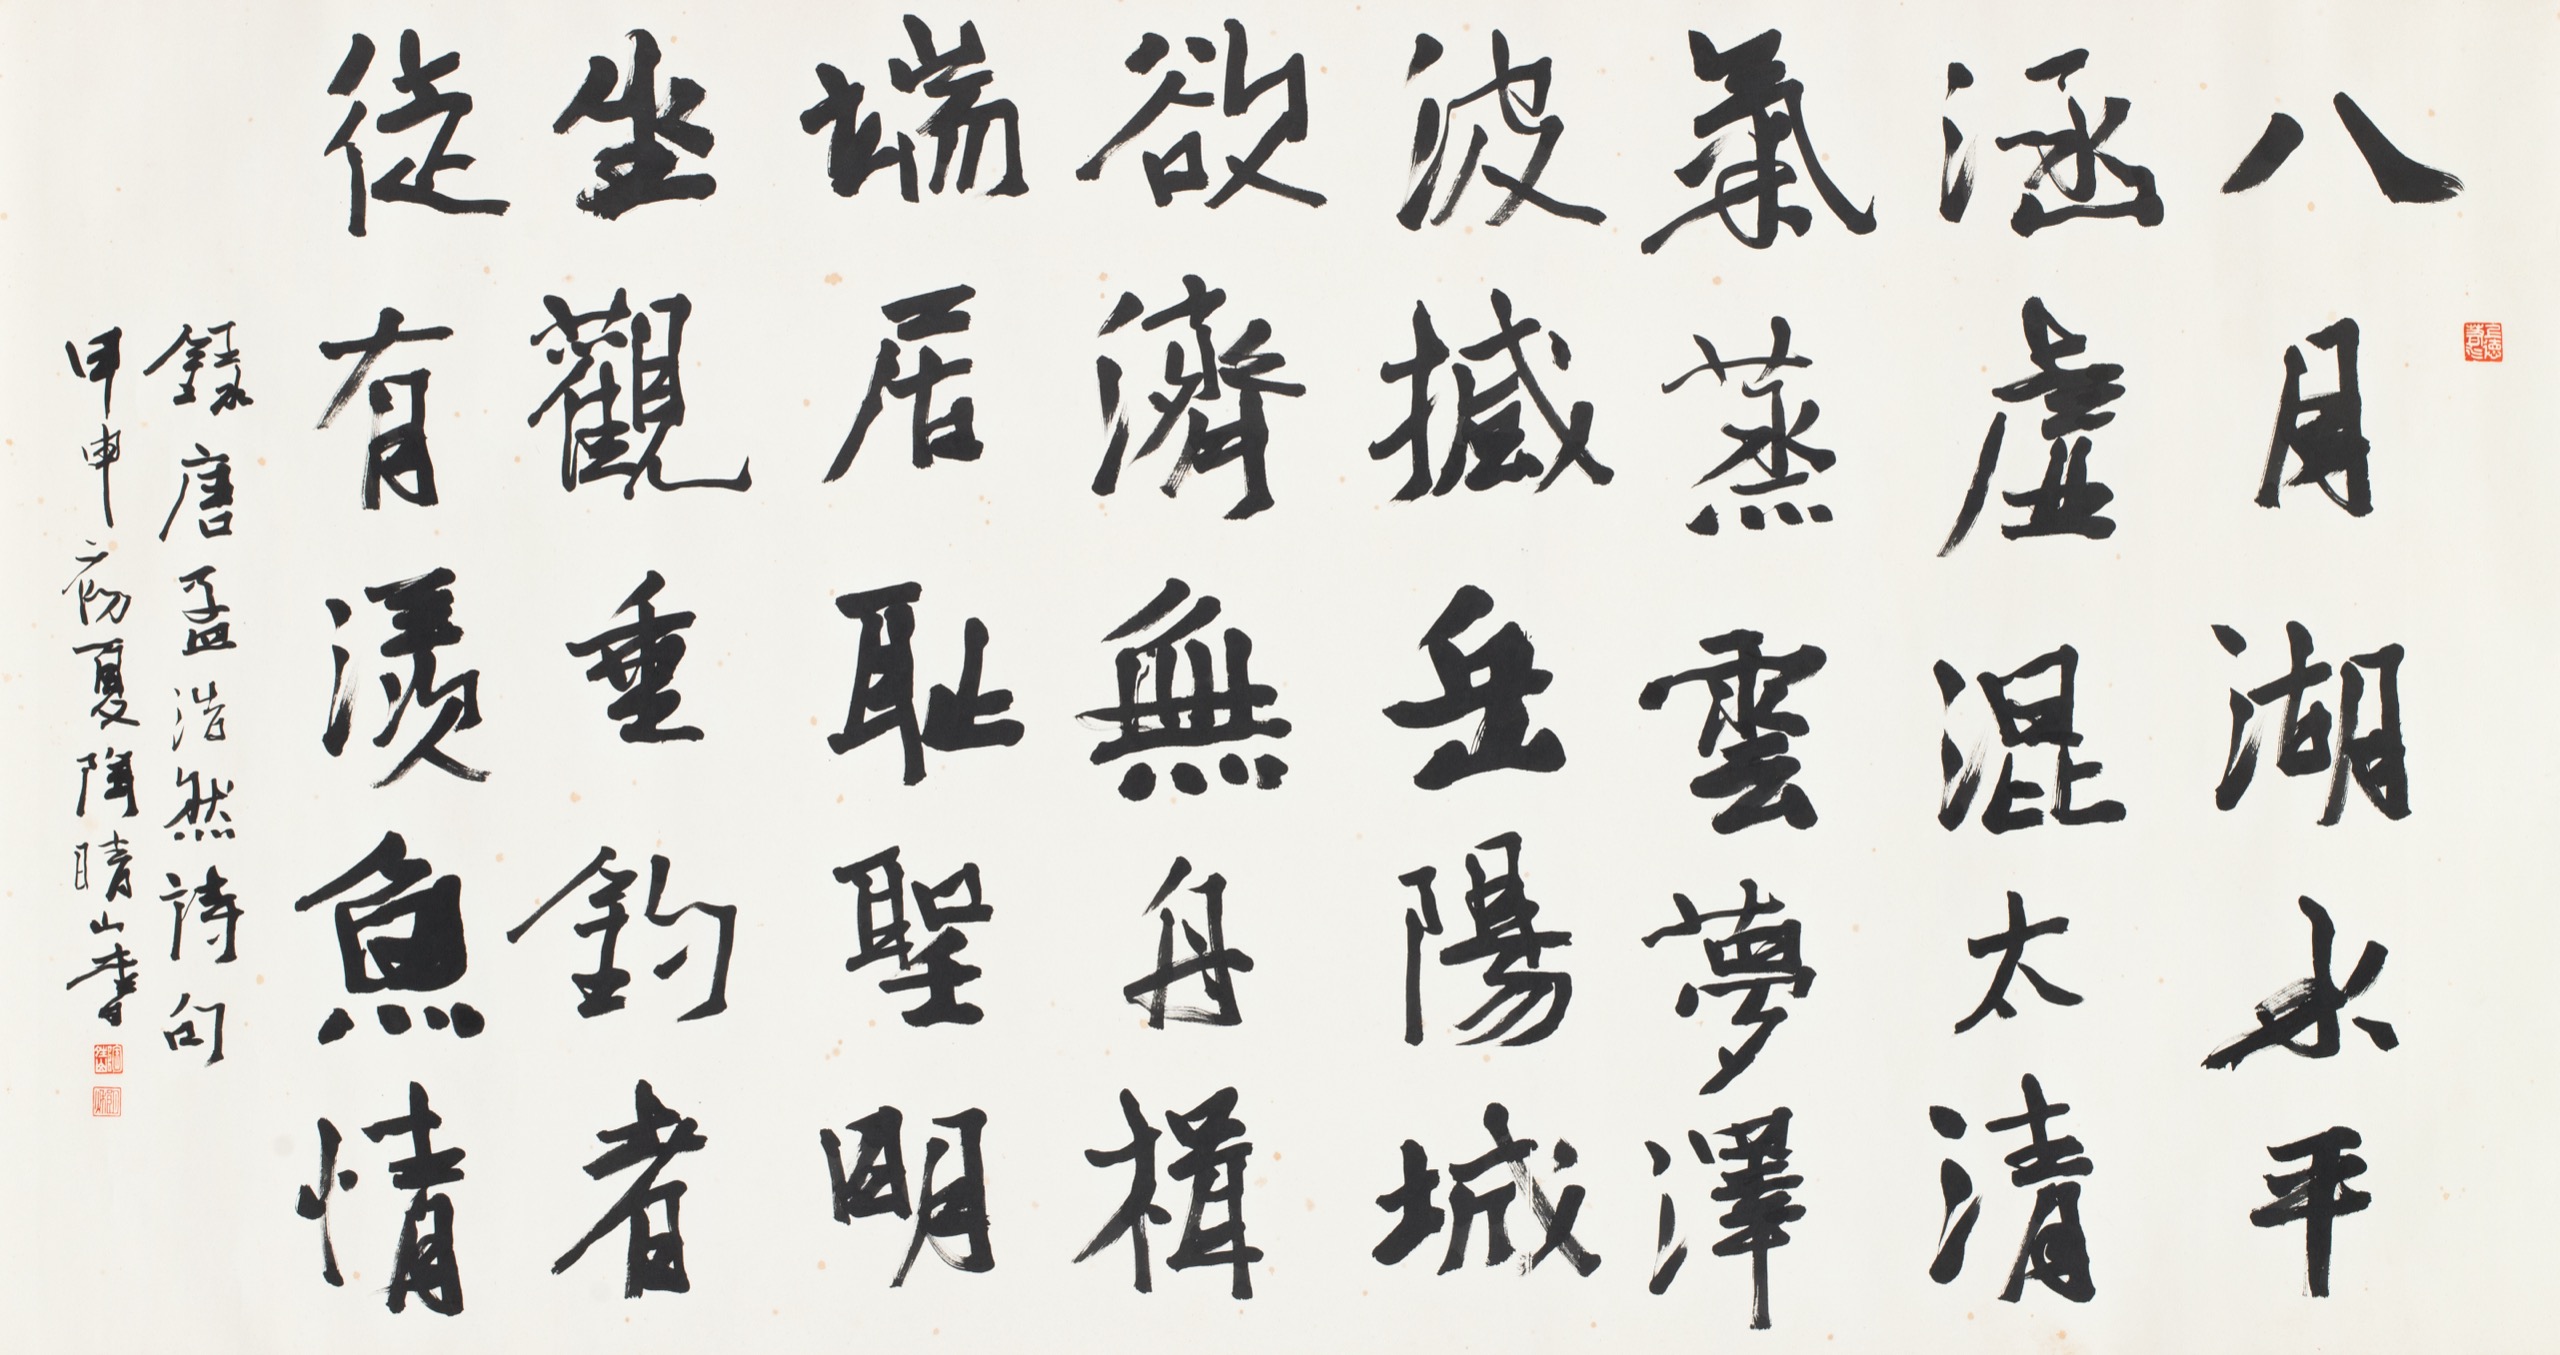 八月湖水平
涵虛混太清
氣蒸雲夢澤
波撼岳陽城
欲濟無舟楫
端居耻聖明
坐觀垂釣者
徒有羨魚情
錄唐孟浩然詩句
甲申夏陶晴山書